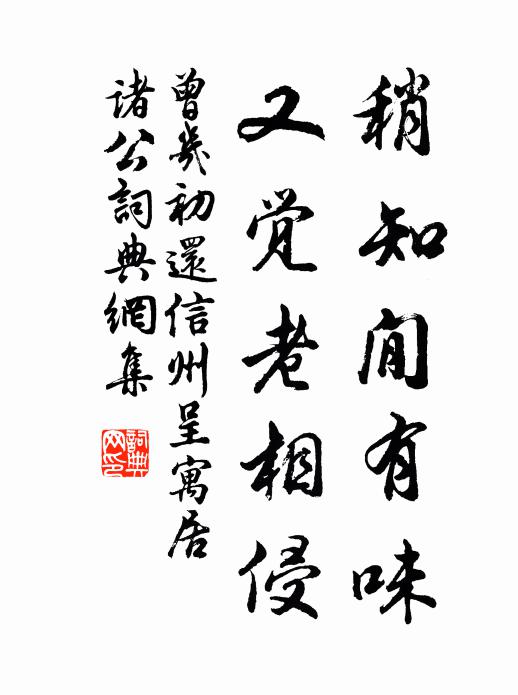 稍知閒有味
又觉老相侵
曾幾初還信州呈寓居
諸公詞典網集
詞典网印